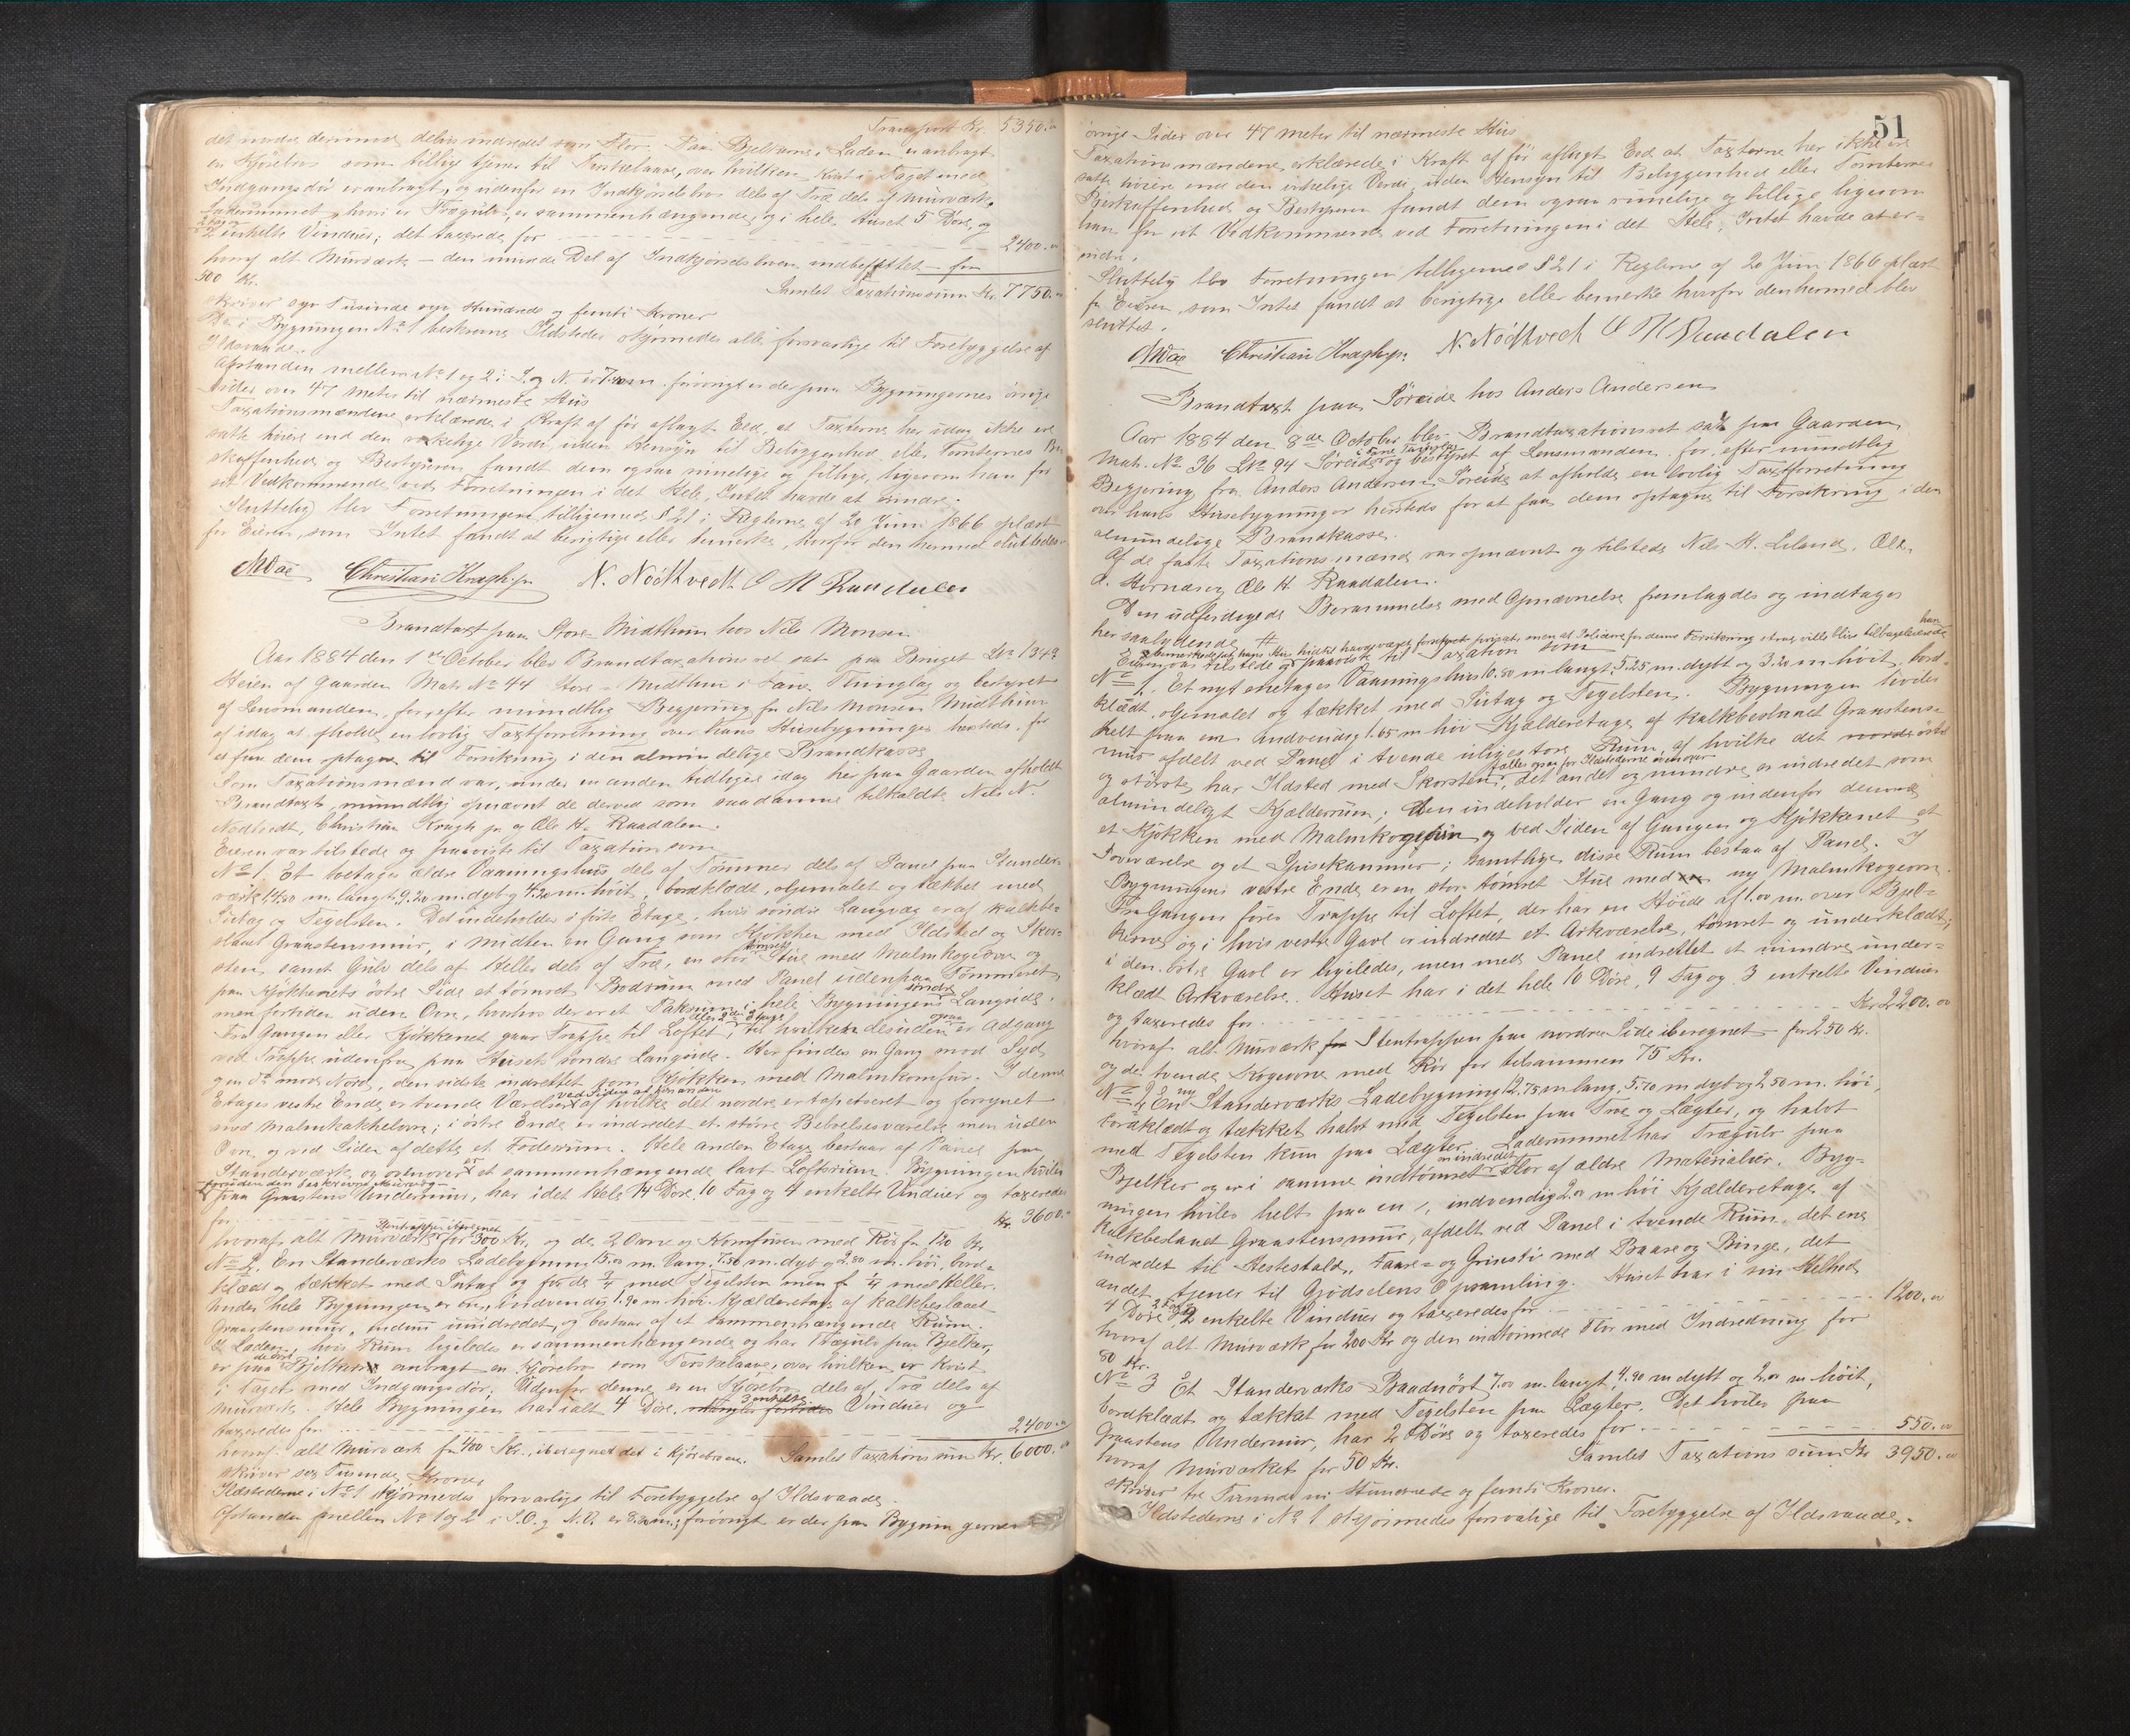 Transport Kr. 5350.00
det nordre derimod delvis indredet som Flor. Paa Bjelkerne i Laden er anbragt
en Kjørebro som tillige tjener til Tærskelaave, over hvilken Kvist i Taget med
Indgangsdør er anbragt, og udenfor en Indkjørselsbro dels af Træ dels af Murværk.
Laderummet, hvori er Trægulv, er sammenhængende, og i hele Huset 5 Døre, og
2 enkelte Vinduer; det taxeredes for 2400.00
hvoraf alt Murværk – den murede Del af Indkjørselsbroen indbefattet – for
500 Kr.
Samlet Taxationssum Kr. 7750.00
skriver syv Tusinde syv Hundrede og femti Kroner
De i Bygningen No 1 beskrevne Ildsteder skjønnedes alle forsvarlige til Forebyggelse af
Ildsvaade.
Afstanden mellem No 1 og 2 i S. og N. er 7. m. forøvrigt er der paa Bygningernes øvrige
Sider over 47 Meter til nærmeste Hus
Taxationsmændene erklærede i Kraft af før aflagt Eed, at Taxterne her idag ikke ere
satte høiere end den virkelige Værdi, uden Hensyn til Beliggenhed eller Tomternes Be-
skaffenhed og Bestyreren fandt dem ogsaa rimelige og billige, ligesom han for
sit Vedkommende ved Forretningen i det Hele, Intet havde at erindre.
Sluttelig blev Forretningen tilligemed § 21 i Reglerne af 20 Juni 1866 oplæst
for Eieren, som Intet fandt at berigtige eller bemerke, hvorfor den hermed sluttedes.
Christian Kragh jr. N. Nödtvedt O M Raadalen
Brandtaxt paa Store-Midthun hos Nils Monsen
Aar 1884 den 1ste October blev Brandtaxationsret sat paa Bruget LNo 134a
Heien af Gaarden Mat. No 44 Store-Midthun i Fane Thinglag og bestyret
af Lensmanden, for, efter mundtlig Begjering fra Nils Monsen Midthun
af idag at afholde en lovlig Taxtforretning over hans Husebygninger hersteds, for
at faa dem optagne til Forsikring i den almindelige Brandkasse
Som Taxationsmænd var, under en anden tidligere idag her paa Gaarden afholdt
Brandtaxt, mundtlig opnævnt de derved som saadanne tilkaldte Nils N.
Nødtvedt, Christian Kragh jr. og Ole H. Raadalen.
Eieren var tilstede og paaviste til Taxation som
No 1 Et toetages ældre Vaaningshus dels af Tømmer dels af Panel paa Stender-
værk 14.50 m. langt, 9.20 m. dybt og 4.20 m. høit, bordklædt, oljemalet og tækket med
Sutag og Tegelsten. Det indeholder i første Etage, hvis søndre Langvæg er af kalkbe-
slaaet Graastensmur, i Midten en Gang som Kjøkken med Ildsted og Skor-
sten samt Gulv dels af Heller dels af Træ, en stor tømret Stue med Malmkogeovn og
paa Kjøkkenets østre Side et tømret Bodrum med Panel udenpaa Tømmeret
men fortiden uden Ovn, hvorhos der er et Pakrum i hele Bygningens søndre Langside.
Fra Gangen eller Kjøkkenet gaar Trappe til Loftet eller 2den Etage, til hvilken desuden ogsaa er Adgang
ved Trappe udenfra paa Husets søndre Langside. Her findes en Gang mod Syd
og en do mod Nord, den sidste indrettet som Kjøkken med Malmkomfur. I denne
Etages vestre Ende er tvende Værelser ved Siden af hinanden af hvilke det nordre er tapetseret og forsynet
med Malmkakkelovn; i østre Ende er indredet et større Beboelsesværelse men uden
Ovn og ved Siden af dette et Foderum. Hele anden Etage bestaar af Panel paa
Stenderværk og ovenover er et sammenhængende lavt Loftsrum. Bygningen hviler
foruden den beskrevne Murvæg
paa Graastens Undermur, har i det Hele 14 Døre, 10 Fag og 4 enkelte Vinduer og taxeredes
for Kr. 3600.00
hvoraf alt Murværk Stentrapper iberegnet for 300 Kr. og de 2 Ovne og Komfuren med Rør for 120 Kr.
No 2. En Stenderværks Ladebygning 15.00 m. lang, 7.50 m. dyb og 2.80 m. høi, bord-
klædt og tækket med Sutag og for de 3/4 med Tegelsten men for 1/4 med Heller.
Under hele Bygningen er en, indvendig 1.90 m høi Kjælderetage af kalkbeslaaet
Graastensmur, endnu uindredet og bestaar af et sammenhængende Rum.
I Laden, hvis Rum ligeledes er sammenhængende og har Trægulv paa Bjelker,
er paa Bjelkerne anbragt en Kjørebro som Tærskelaave, over hvilken er Kvist
i Taget med Indgangsdør; Udenfor denne er en Kjørebro dels af Træ dels af
Murværk. Hele Bygningen har ialt 4 Døre, 3 enkelte Vinduer og
taxeredes for 2400.00
hvoraf alt Murværk for 400 Kr., iberegnet det i Kjørebroen. Samlet Taxationssum Kr. 6000.00
skriver sex Tusinde Kroner
Ildstederne i No 1 skjønnedes forsvarlige til Forebyggelse af Ildsvaade
Afstanden mellem No 1 og 2 i S.O. og N.V. er m; forøvrigt er der paa Bygningernes
51
øvrige Sider over 47 Meter til nærmeste Hus
Taxationsmændene erklærede i Kraft af før aflagt Eed at Taxterne her ikke ere
satte høiere end den virkelige Værdi, uden Hensyn til Beliggenhed eller Tomternes
Beskaffenhed og Bestyreren fandt dem ogsaa rimelige og billige ligesom
han for sit Vedkommende ved Forretningen i det Hele, Intet havde at er-
indre.
Sluttelig blev Forretningen tilligemed § 21 i Reglerne af 20 Juni 1866 oplæst
for Eieren, som Intet fandt at berigtige eller bemerke hvorfor den hermed blev
sluttet.
Christian Kragh jr. N. Nödtvedt O M Raadalen
Brandtaxt paa Søreide hos Anders Andersen
Aar 1884 den 8de October blev Brandtaxationsret sat paa Gaarden
Mat. No 36 LNo 94 Søreide i Fane Thinglag og bestyret af Lensmanden for, efter mundtlig
Begjering fra Anders Andersen Søreide at afholde en lovlig Taxtforretning
over hans Husebygninger hersteds for at faa dem optagne til Forsikring i den
almindelige Brandkasse.
Af de faste Taxationsmænd var opnævnt og tilstede Nils H. Liland, Ole
A. Stornæs og Ole H. Raadalen.
Den udferdigede Berammelse med Opnævnelse fremlagdes og indtages
her saalydende #
& bemerkede at hans Hus hidtil havde været forsikret privat, men at Policerne for denne Forsikring strax vilde blive tilbageleverede
Eieren var tilstede og paaviste til Taxation som
No 1. Et nyt enetages Vaaningshus 10.80 m langt, 5.25 m. dybt og 3.20 m høit, bord-
klædt, oljemalet og tækket med Sutag og Tegelsten. Bygningen hviler
helt paa en indvendig 1.65 m høi Kjælderetage af kalkbeslaaet Graastens-
mur afdelt ved Panel i tvende uligestore Rum, af hvilke det østre
og største har Ildsted med Skorsten, fælles ogsaa for Ildstederne ovenpaa; det andet og mindre er indredet som
almindeligt Kjælderrum; Den indeholder en Gang og indenfor denne
et Kjøkken med Malmkogeovn og ved Siden af Gangen og Kjøkkenet et
Forværelse og et Spisekammer; samtlige disse Rum bestaa af Panel. I
Bygningens vestre Ende er en stor tømret Stue med ny Malmkogeovn.
Fra Gangen fører Trappe til Loftet, der har en Høide af 1.00 m. over Bjel-
kerne og i hvis vestre Gavl er indredet et Arkværelse, tømret og underklædt;
i den østre Gavl er ligeledes, men med Panel indrettet et mindre under-
klædt Arkværelse. Huset har i det hele 10 Døre, 9 Fag og 3 enkelte Vinduer
og taxeredes for Kr. 2200.00
hvoraf alt Murværk Stentrappen paa nordre Side iberegnet – for 250 Kr.
og de tvende Kogeovne med Rør for tilsammen 75 Kr.
No 2 En ny Stenderværks Ladebygning 12.75 m lang, 5.70 m dyb og 2.50 m. høi,
bordklædt og tækket halvt med Tegelsten paa Træ og Lægter, og halvt
med Tegelsten kun paa Lægter. Laderummet har Trægulv paa
Bjelker og er i samme indtømret en indredet Flor af ældre Materialier. Byg-
ningen hviler helt paa en, indvendig 2.00 m høi Kjælderetage af
kalkbeslaaet Graastensmur, afdelt ved Panel i tvende Rum, det ene
indredet til Hestestald, Faare- og Grisesti med Baase og Binge, det
andet tjener til Gjødselens Opsamling. Huset har i sin Helhed
4 Døre 2 Fag og 2 enkelte Vinduer og taxeredes for 1200.00
hvoraf alt Murværk for 200 Kr og den indtømrede Flor med Indredning for
80 Kr.
No 3 Et Stenderværks Baadnöst 7.00 m. langt, 4.90 m dybt og 2.00 m. høit,
bordklædt og tækket med Tegelsten paa Lægter. Det hviler paa
Graastens Undermur, har 2 Døre og taxeredes for 550.00
hvoraf Murværket for 50 Kr.
Samlet Taxations sum Kr 3950.00
skriver tre Tusinde ni Hundrede og femti Kroner.
Ildstederne i No 1 skjønnedes forsvarlige til Forebyggelse af Ildsvaade.